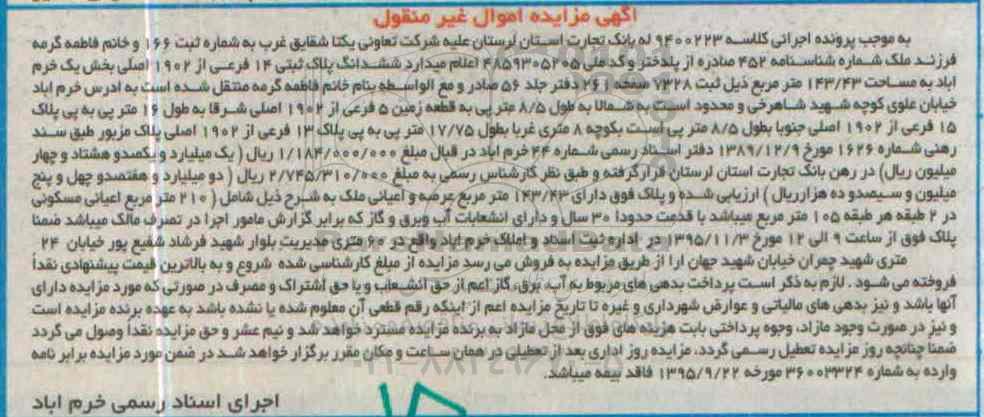 آگهی مزایده اموال غیر منقول
به موجب پرونده اجرائی کلاسه ۹۴۰۰۲۲۳ له بانک تجارت استان لرستان علیه شرکت تعاونی یکتا شقایق غرب به شماره ثبت ۱۶۶ و خانم فاطمه گرمه
فرزند ملک شماره شناسنامه ۴۵۲ صادره از پلدختر و کد ملی ۴۸۵۹۳۰۵۲۰۵ اعلام میدارد ششدانگ پلاک ثبتی ۱۴ فرعی از ۱۹۰۲ اصلی بخش یک خرم
اباد به مساحت ۱۴۳/۴۳ متر مربع ذیل ثبت ۷۳۲۸ صفحه ۲۶۱ دفتر جلد ۵۶ صادر و مع الواسطه بنام خانم فاطمه گرمه منتقل شده است به ادرس خرم اباد
خیابان علوی کوچه شهید شاهرخی و محدود است به شمالا به طول ۸/۵ متر پی به قطعه زمین ۵ فرعی از ۱۹۰۲ اصلی شرقا به طول ۱۶ متر پی به پی پلاک
۱۵ فرعی از ۱۹۰۲ اصلی جنوبا بطول ۸/۵ متر پی است بکوچه ۸ متری غربا بطول ۱۷/۷۵ متر پی به پی پلاک ۱۳ فرعی از ۱۹۰۲ اصلی پلاک مزبور طبق سند
رهنی شماره ۱۶۲۶ مورخ ۱۳۸۹/۱۲/۹ دفتر اسناد رسمی شماره ۴۴ خرم اباد در قبال مبلغ ۱/۱۸۴/۰۰۰/۰۰۰ ریال ( یک میلیارد و یکصدو هشتاد و چهار
میلیون ریال) در رهن بانک تجارت استان لرستان قرار گرفته و طبق نظر کارشناس رسمی به مبلغ ۲/۷۴۵/۳۱۰/۰۰۰ ریال ( دو میلیارد و هفتصدو چهل و پنج
میلیون و سیصدو ده هزارریال ) ارزیابی شده و پلاک فوق دارای ۱۴۳/۴۳ متر مربع عرصه و اعیانی ملک به شرح ذیل شامل ( ۲۱۰ متر مربع اعیانی مسکونی
در ۲ طبقه هر طبقه ۱۰۵ متر مربع میباشد با قدمت حدودا ۳۰ سال و دارای انشعابات آب وبرق و گاز که برابر گزارش مامور اجرا در تصرف مالک میباشد ضمنا
پلاک فوق از ساعت ۹ الی ۱۲ مورخ ۱۳۹۵/۱۱/۳ در اداره ثبت اسناد و املاک خرم اباد واقع در ۶۰ متری مدیریت بلوار شهید فرشاد شفیع پور خیابان ۲۴
متری شهید چمران خیابان شهید جهان ارا از طریق مزایده به فروش می رسد مزایده از مبلغ کارشناسی شده شروع و به بالاترین قیمت پیشنهادی نقداً
فروخته می شود . لازم به ذکر است پرداخت بدهی های مربوط به آب، برق، گاز اعم از حق انشعاب و یا حق اشتراک و مصرف در صورتی که مورد مزایده دارای
آنها باشد و نیز بدهی های مالیاتی و عوارض شهرداری و غیره تا تاریخ مزایده اعم از اینکه رقم قطعی آن معلوم شده یا نشده باشد به عهده برنده مزایده است
و نیز در صورت وجود مازاد، وجوه پرداختی بابت هزینه های فوق از محل مازاد به برنده مزایده مسترد خواهد شد و نیم عشر و حق مزایده نقداً وصول می گردد
ضمنا چنانچه روز مزایده تعطیل رسمی گردد، مزایده روز اداری بعد از تعطیلی در همان ساعت و مکان مقرر برگزار خواهد شد در ضمن مورد مزایده برابر نامه
وارده به شماره ۳۶۰۰۳۳۲۴ مورخه ۱۳۹۵/۹/۲۲ فاقد بیمه میباشد.
اجرای اسناد رسمی خرم اباد